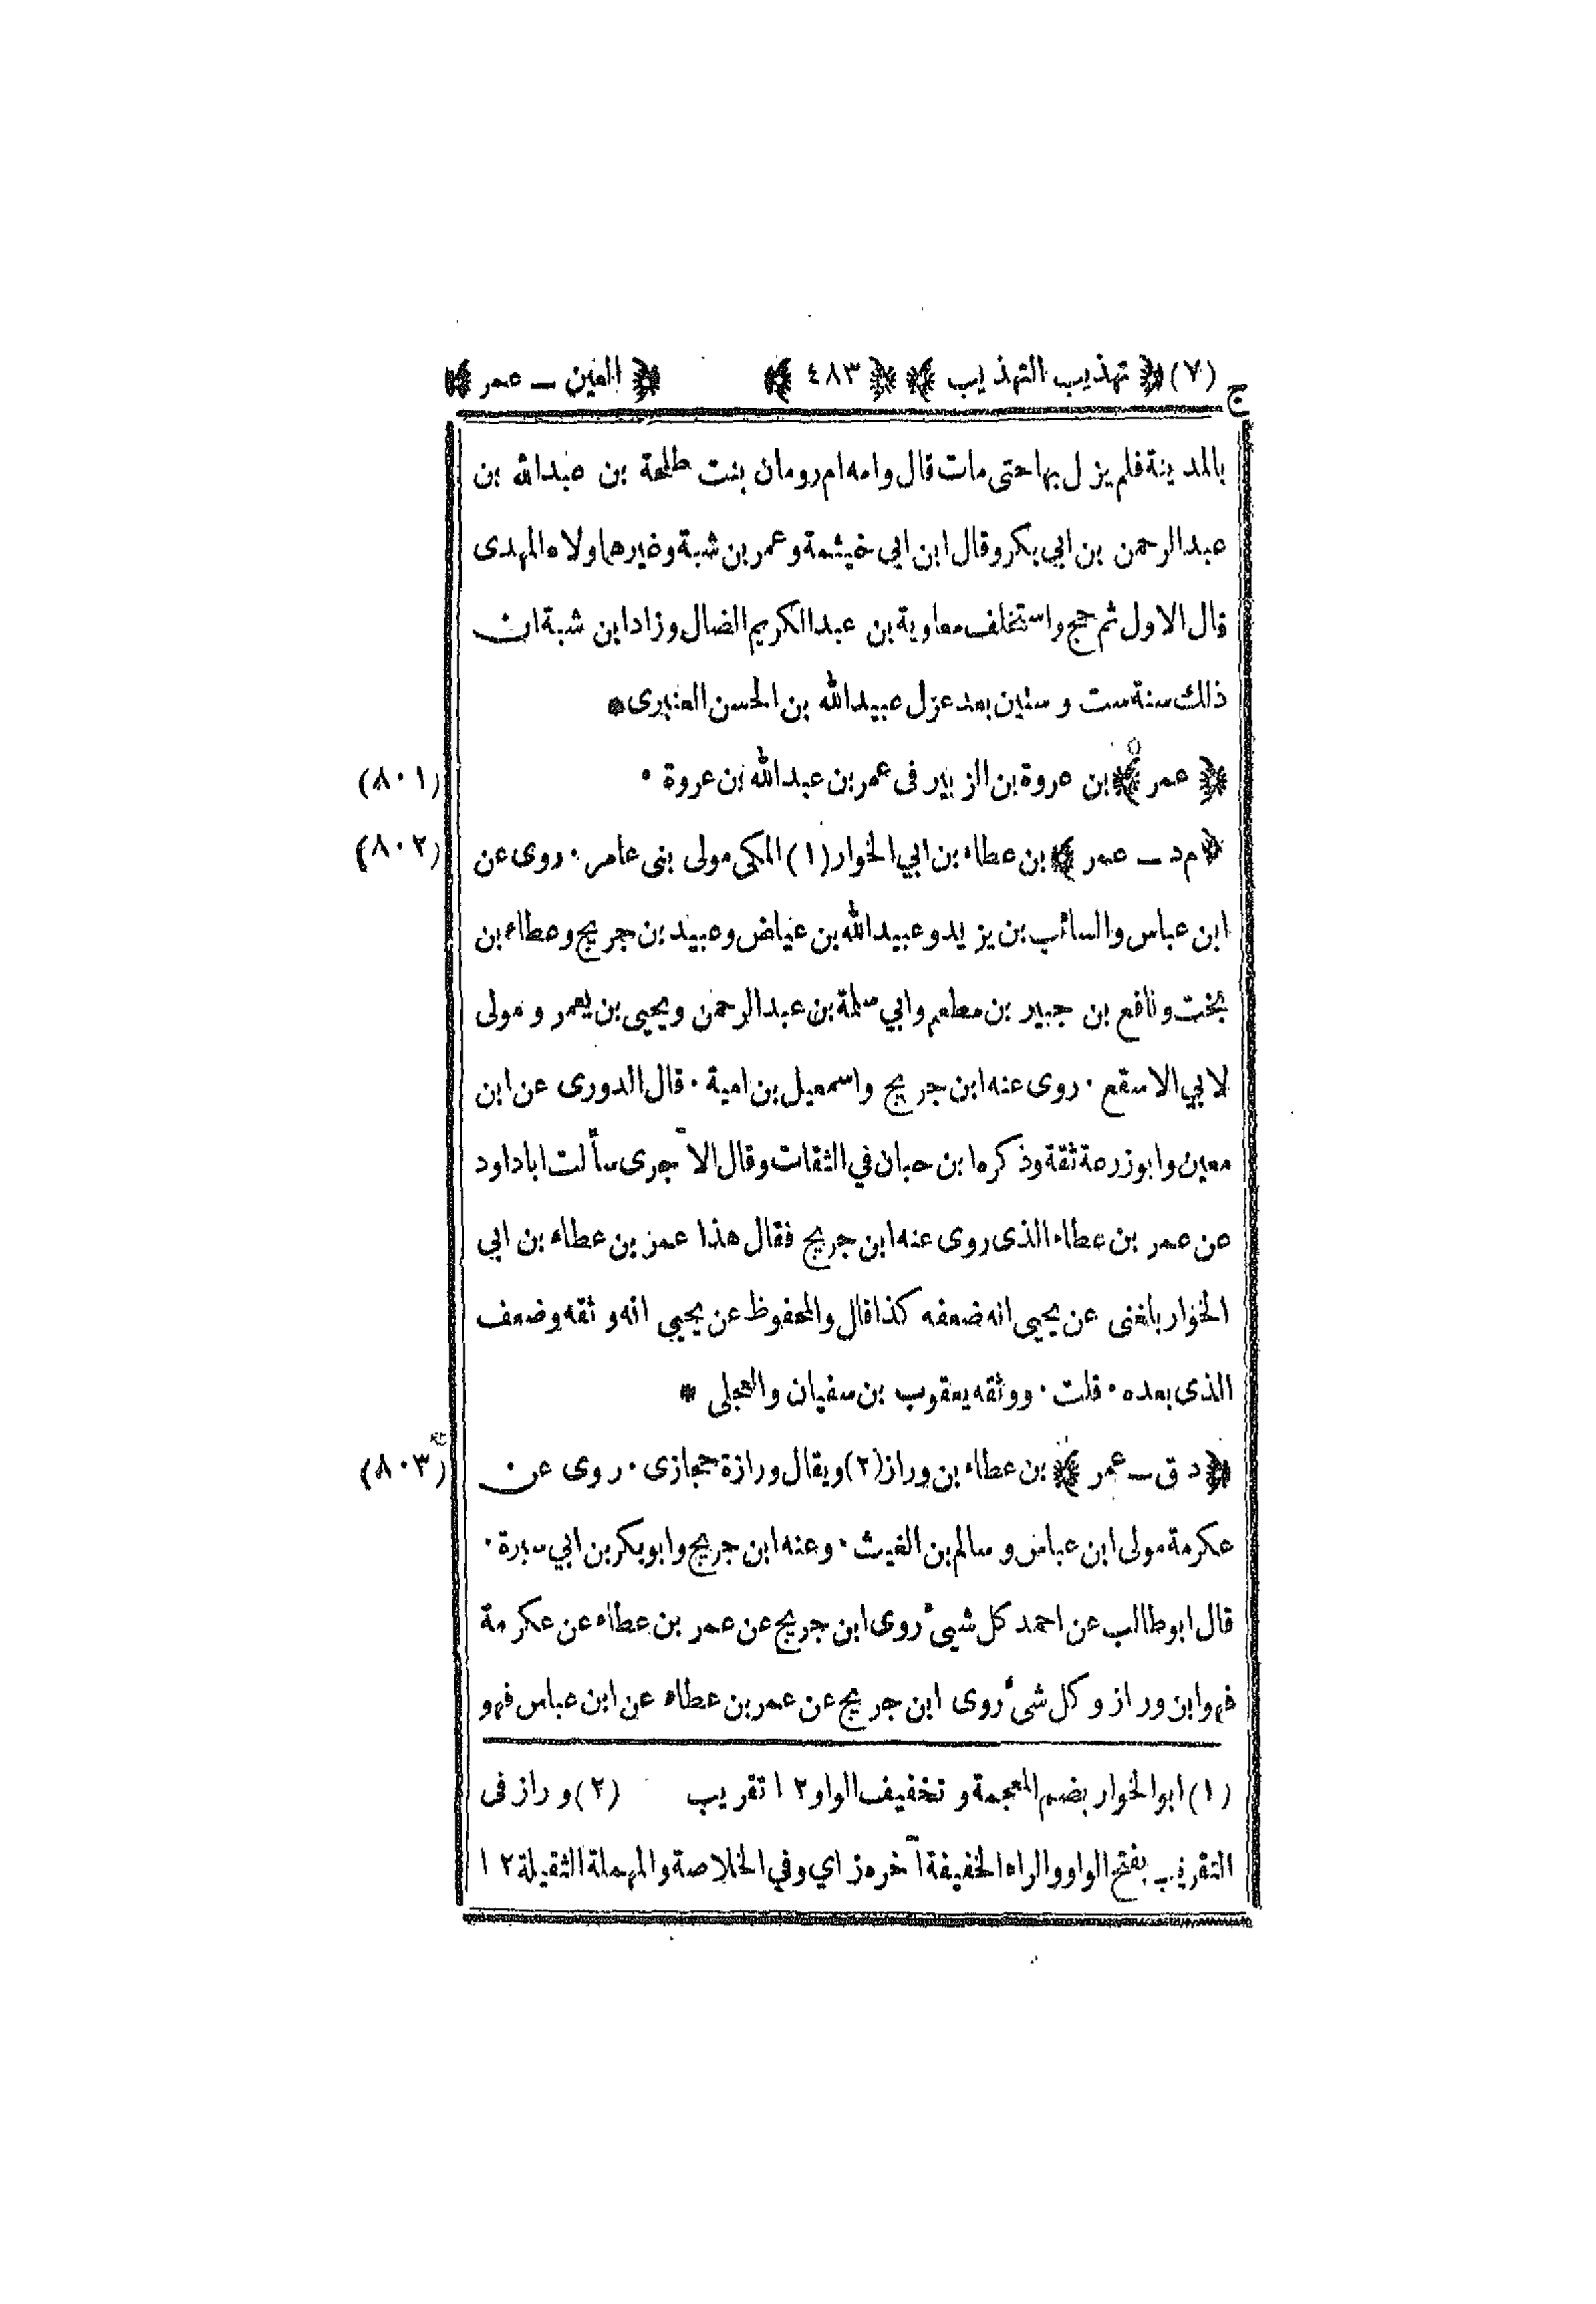 ج (٧) ﴿ تهذيب التهذيب ﴾ ﴿ ٤٨٣ ﴾ ﴿ العين ـ عمر ﴾
بالمدينة فلم يزل بها حتى مات قال وامه ام رومان بنت طلحة بن عبدالله بن
عبدالرحمن بن ابي بكر وقال ابن ابي خيثمة وعمر بن شبة وغيرهما ولاه المهدى
قال الاول ثم حج واستخلف معاوية بن عبدالكريم الضال وزاد ابن شبة ان
ذلك سنة ست و ستين بعد عزل عبيدالله بن الحسن العنبرى *
﴿ عمر ﴾ بن عروة بن الزبير فى عمر بن عبدالله بن عروة · (٨٠١)
﴿ م د ـ عمر ﴾ بن عطاء بن ابي الخوار (١) المكي مولى بنى عامر · روى عن (٨٠٢)
ابن عباس والسائب بن يزيد وعبيدالله بن عياض وعبيد بن جريج وعطاء بن
بخت ونافع بن جبير بن مطعم وابي سلمة بن عبدالرحمن ويحيى بن يعمر و مولى
لابي الاسقع · روى عنه ابن جريج واسمعيل بن امية · قال الدورى عن ابن
معين وابوزرعة ثقة وذكره ابن حبان في الثقات وقال الآجرى سألت اباداود
عن عمر بن عطاء الذى روى عنه ابن جريج فقال هذا عمر بن عطاء بن ابي
الخوار بلغنى عن يحيى انه ضعفه كذا قال والمحفوظ عن يحيى انه وثقه وضعف
الذى بعده · قلت · ووثقه يعقوب بن سفيان والعجلى *
﴿ د ق ـ عمر ﴾ بن عطاء بن وراز (٢) ويقال ورازة حجازى · روى عن (٨٠٣)
عكرمة مولى ابن عباس و سالم بن الغيث · وعنه ابن جريج وابوبكر بن ابي سبرة ·
قال ابوطالب عن احمد كل شيئ روى ابن جريج عن عمر بن عطاء عن عكرمة
فهو ابن وراز و كل شئ روى ابن جريج عن عمر بن عطاء عن ابن عباس فهو
(١) ابوالخوار بضم المعجمة و تخفيف الواو ١٢ تقريب (٢) و راز فى
التقريب بفتح الواو والراء الخفيفة آخره زاي وفي الخلاصة والمهملة الثقيلة ١٢